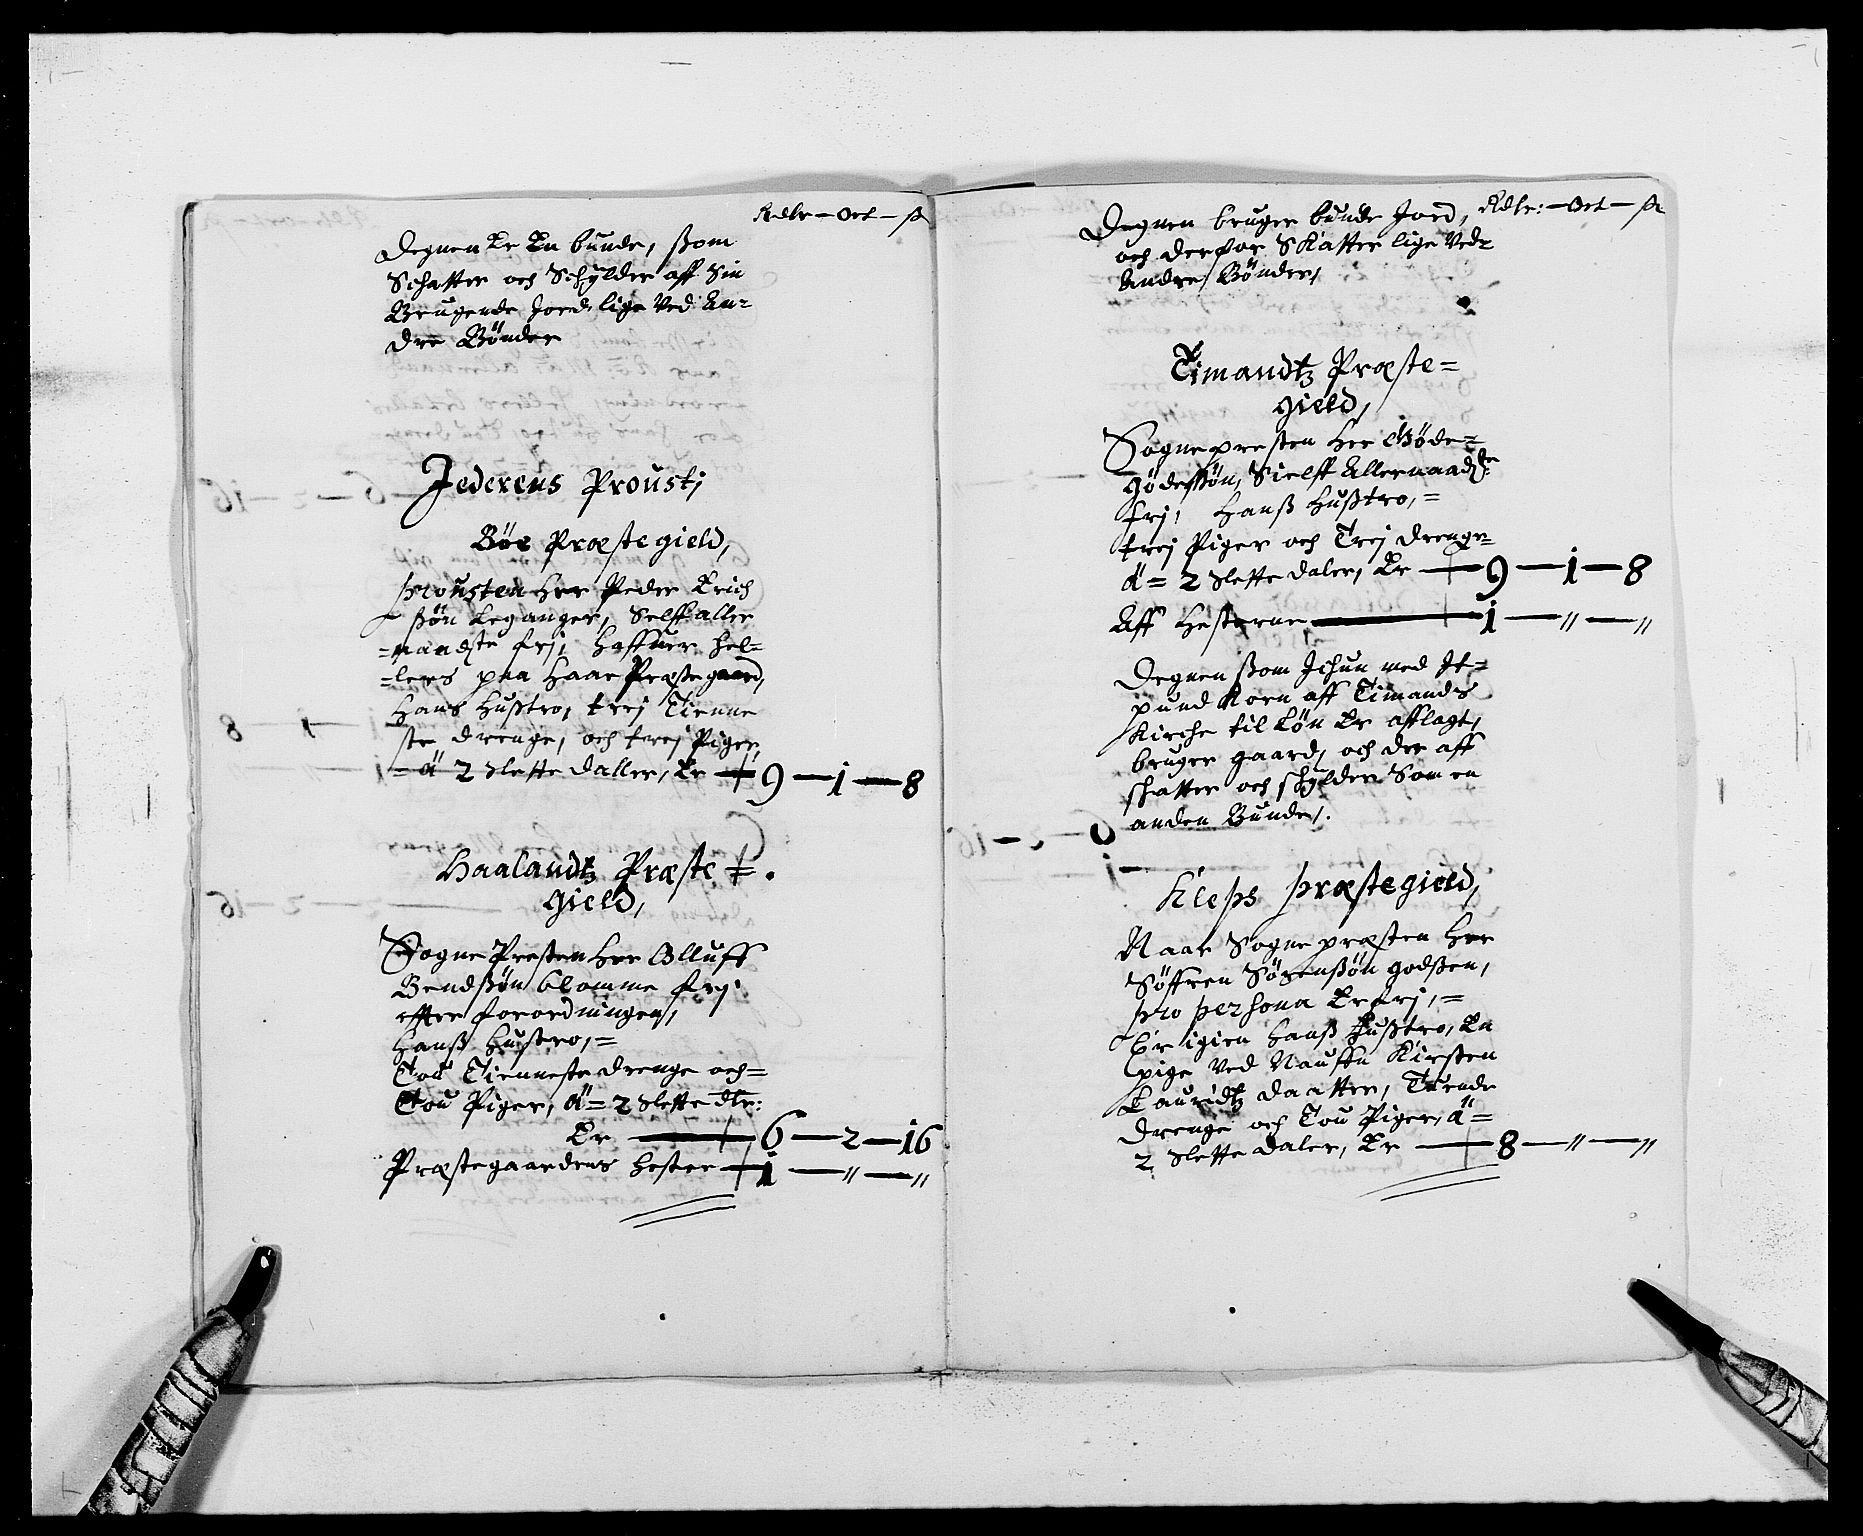 Rdlr — Ort — ß
Degnen Er En bunde, ßom
Schatter och Schylder aff Sin
Brugende Jord lige Ved An-
dre Bönder
Jederens Proustj
Böe Præstegield,
prousten Her Peder Erich
ßön Leganger, Selff aller
naadste frj, Haffuer hel-
lers paa Haar Præstegaard,
Hans Hußtro, trej Tienne
ste drenge, och trej Piger,
= á 2 Slette daller, Er — 9 — 1 — 8
Haalandtz Præste =
gield,
Sogne Presten Her Olluff
Bendßön blomme frj
effter forordningen,
Hanß Hustro, =
Tou Tienneste drenge och =
Tou Piger, á = 2 Slette dlr:
Er — 6 — 2 — 16
Præstegaardens hester — 1 — " — "
Rdlr: — Ort — ß
Degnen bruger bunde Jord,
och derfor Skatter lige Ved
Andre Bönder,
Timandtz Præste =
gield,
Sognepresten Her Göde =
Gödeßön, Sielff Allernaadste
frj, Hanß Hußtro, =
trej Piger och Trej drenge
á = 2 Slette daler, Er — 9 — 1 — 8
Aff Hesterne — 1 — " — "
Degnen ßom Ichun med It =
pund Korn aff Timands
Kirche til Lön Er afflagt,
bruger gaard, och der aff
skatter och schylder Som en
anden Bunde,.
Kleps præstegield,
Naar Sogne præsten Her
Söffren Sörenßön godßen,
pro persona Er frj, =
Er igien Hanß Hußtro, En
pige Ved Nauffn Kirsten
Lauridtz daatter, Tuende
drenge och Tou Piger, á =
2 Slette daler, Er — 8 — " — "